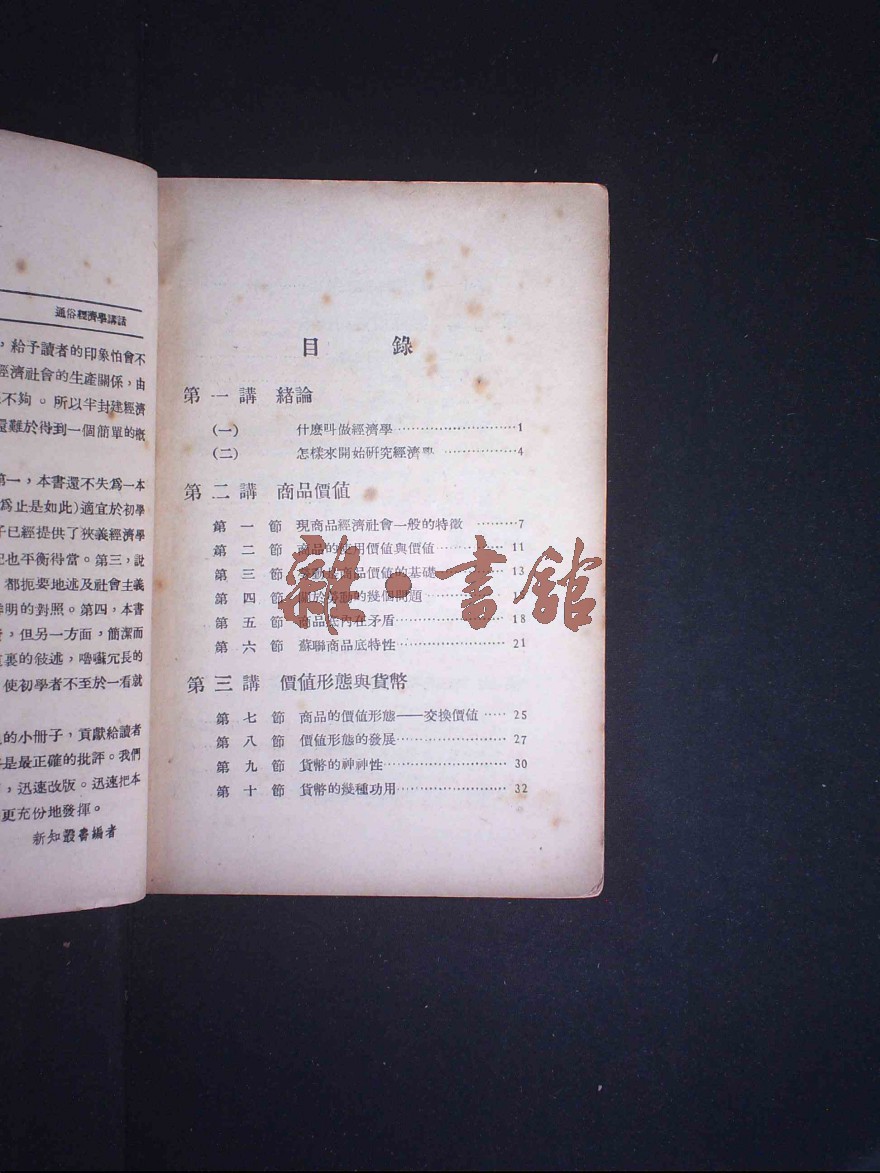 通俗經濟學講話
，給予讀者的印象怕會不
經濟社會的生產關係，由
不夠。所以半封建經濟
還難於得到一個簡單的概
第一，本書還不失為一本
為止是如此)適宜於初學
子已經提供了狹義經濟學
也平衡得當。第三，說
都扼要地述及社會主義
明的對照。第四，本書
，但另一方面，簡潔而
裏的敍述，嚕囌冗長的
使初學者不至於一看就
的小冊子，貢獻給讀者
是最正確的批評。我們
，迅速改版。迅速把本
更充份地發揮。
新知叢書編者
目 錄
第一講 緒論
(一) 什麼叫做經濟學……………………1
(二) 怎樣來開始研究經濟學……………4
第二講 商品價值
第一節 現商品經濟社會一般的特徵………7
第二節 商品的使用價值與價值…………11
第三節 勞動是商品價值的基礎…………13
第四節 關於勞動的幾個問題…………
第五節 商品底內在矛盾…………18
第六節 蘇聯商品底特性…………21
第三講 價值形態與貨幣
第七節 商品的價值形態——交換價值……25
第八節 價值形態的發展…………27
第九節 貨幣的神神性…………30
第十節 貨幣的幾種功用…………32
雜·書館